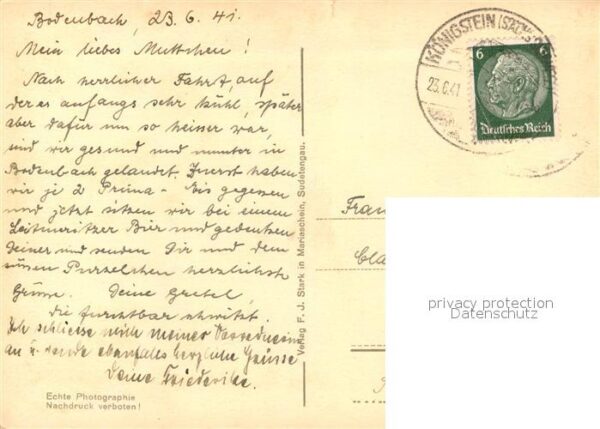 Bodenbach, 23.6.41.
Mein liebes Muttchen!
Nach herrlicher Fahrt, auf
der es anfangs sehr kühl, später
aber dafür um so heisser war,
sind wir gesund und munter in
Bodenbach gelandet. Zuerst haben
wir je 2 Prima-Eis gegessen
und jetzt sitzen wir bei einem
Leitmeritzer Bier und gedenken
Deiner und senden Dir und dem
süssen Purzelchen herzlichste
Grüsse. Deine Gretel,
die furchtbar schwitzt.
Ich schliesse mich meiner Vorrednerin
an u. sende ebenfalls herzliche Grüsse
Deine Friederike.
Echte Photographie
Nachdruck verboten!
Verlag F. J. Stark in Mariaschein, Sudetengau.
KÖNIGSTEIN (SÄCHS
23.6.41
6 6
Deutsches Reich
Frau
privacy protection
Datenschutz